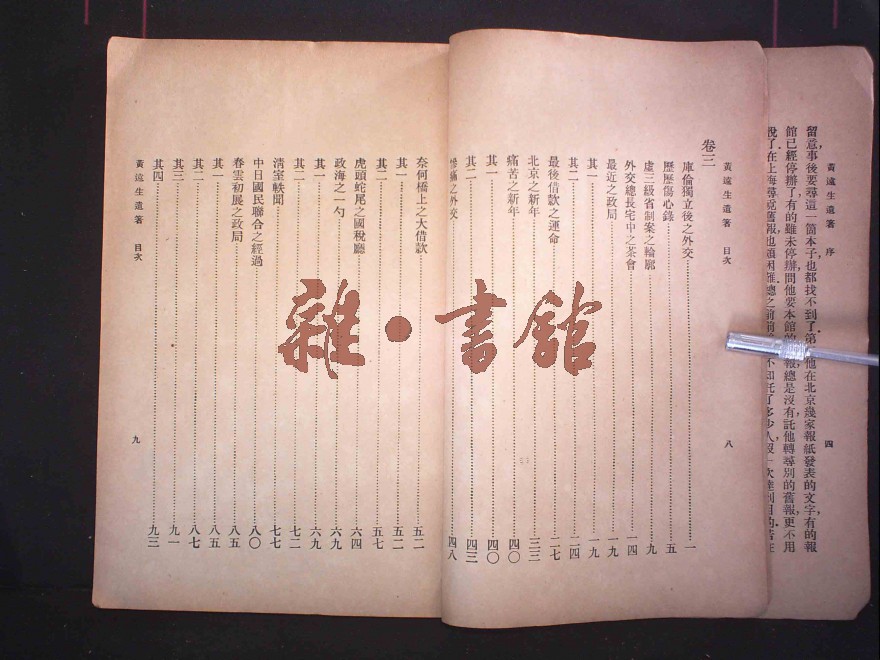 留意事後要尋這一箇本子也都找不到了第
他在北京幾家報紙發表的文字有的報
館已經停辦了有的雖未停辦問他要本館的
報總是沒有託他轉尋別的舊報更不用
說了在上海尋覓舊報也頗困難總之前前
不知託了多少人
四
黃遠生遺著 序
黃遠生遺著 目次
八
卷三
庫倫獨立後之外交 一
歷歷傷心錄 五
虛三級省制案之輪廓 九
外交總長宅中之茶會 一四
最近之政局 一九
其一 一九
其二 二四
最後借款之運命 二七
北京之新年 三三
痛苦之新年 四〇
其一 四〇
其二 四三
慘痛之外交 四八
奈何橋上之大借款 五二
其一 五二
其二 五七
虎頭蛇尾之國稅廳 六四
政海之一勺 六九
其一 六九
其二 七二
清室軼聞 七七
中日國民聯合之經過 八〇
春雲初展之政局 八五
其一 八五
其二 八七
其三 九一
其四 九三
黃遠生遺著 目次
九
雜·書館